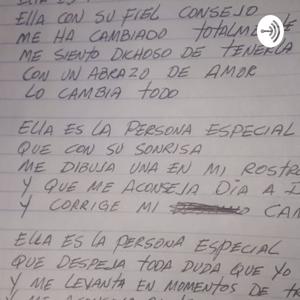 ELLA CON SU FIEL CONSEJO
ME HA CAMBIADO
ME SIENTO DICHOSO DE TENERLA
CON UN ABRAZO DE AMOR
LO CAMBIA TODO
ELLA ES LA PERSONA ESPECIAL
QUE CON SU SONRISA
ME DIBUJA UNA EN MI ROSTRO
Y QUE ME ACONSEJA DÍA A
Y CORRIGE MI
ELLA ES LA PERSONA ESPECIAL
QUE DESPEJA TODA DUDA QUE YO
Y ME LEVANTA EN MOMENTOS DE